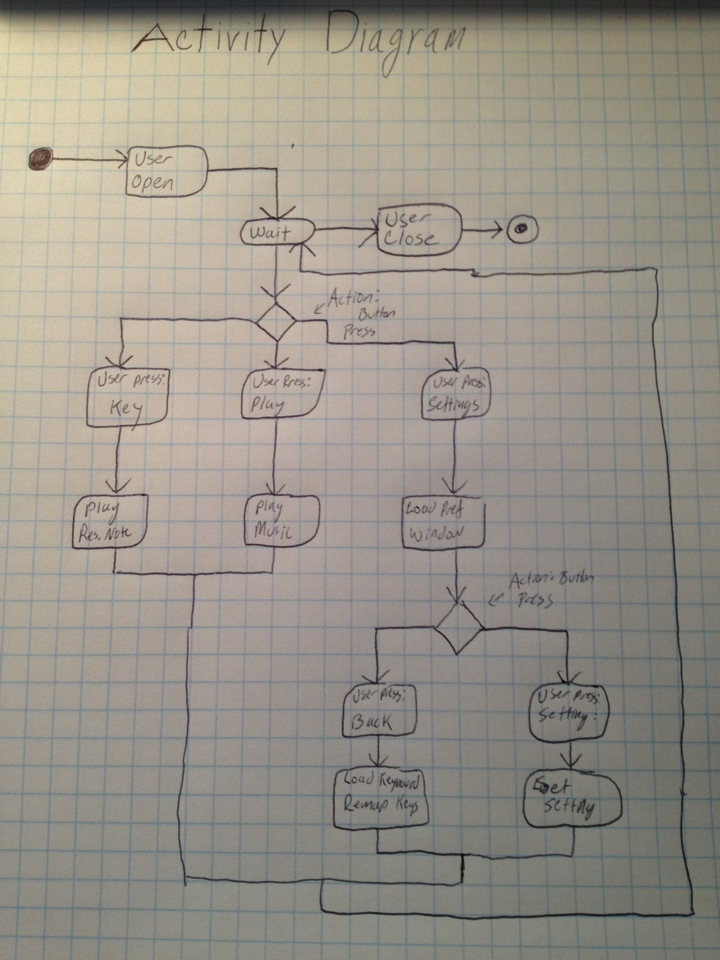 Activity Diagram
User
Open
Wait
User
Close
Action:
Button
Press
User press:
Key
User Press:
Play
User Press:
Settings
Play
Res. Note
Play
Music
Load Pref
Window
Action: Button
Press
User Press:
Back
User Press:
Setting:
Load Keyboard
Remap Keys
Set
Setting